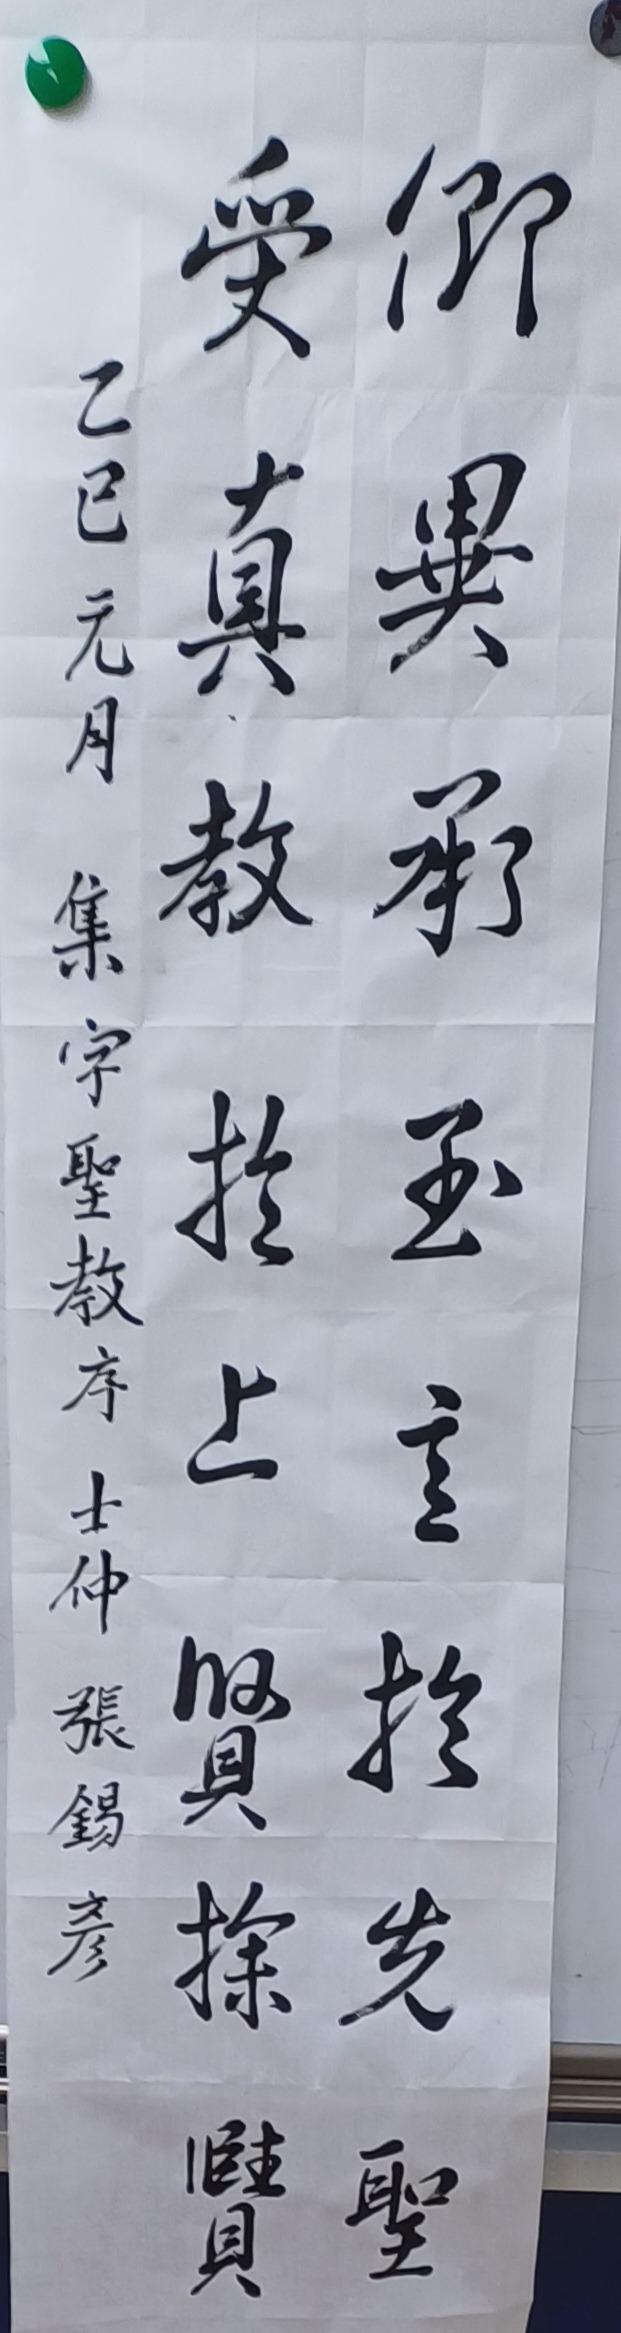 仰異承至言於先聖
受真教於上賢探賾
乙巳元月 集字聖教序 士仲 張錫彥